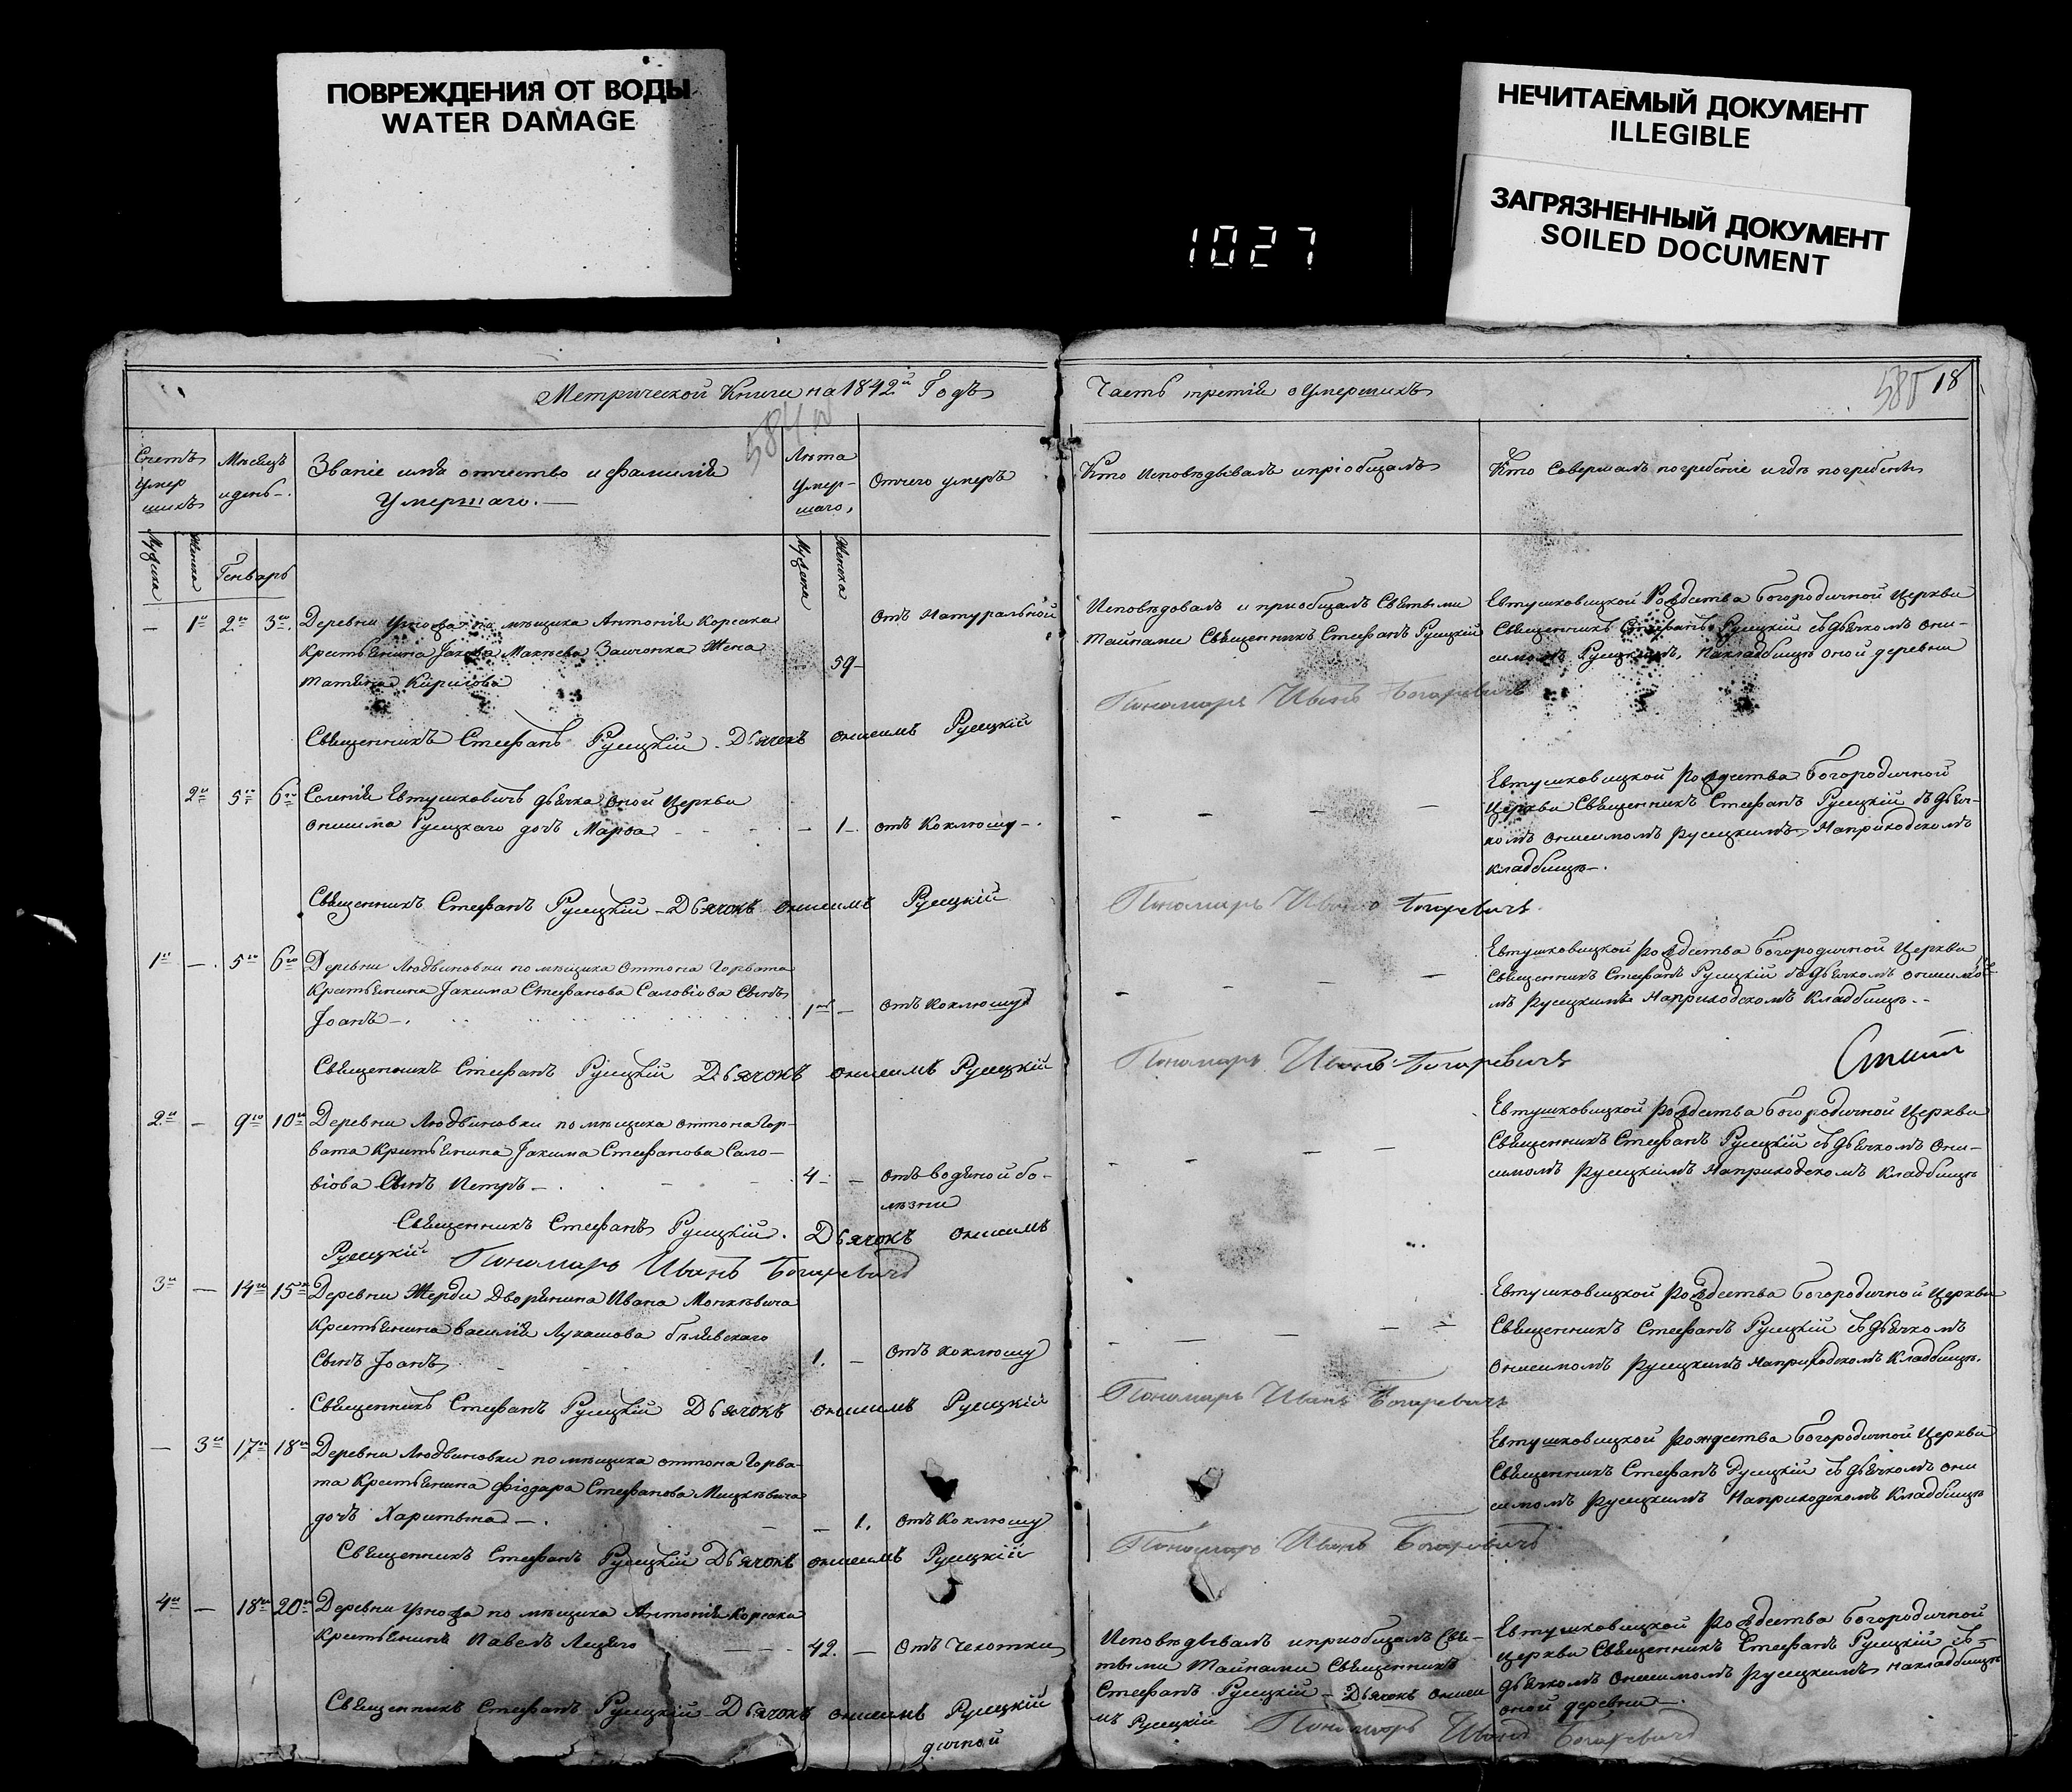 ПОВРЕЖДЕНИЯ ОТ ВОДЫ
WATER DAMAGE
НЕЧИТАЕМЫЙ ДОКУМЕНТ
ILLEGIBLE
ЗАГРЯЗНЕННЫЙ ДОКУМЕНТ
SOILED DOCUMENT
1027
Метрической Книги на 1842й Годъ
Часть третія о Умершихъ
585 18
584
Счетъ умершихъ
Мѣсяцъ и день
Званіе имя отчество и фамилія
Умершаго.
Лѣта умершаго,
Отчего умеръ
Кто Исповѣдывалъ и пріобщалъ
Кто Совершалъ погребеніе и гдѣ погребены
Мужска
Женска
Генварь
Мужска
Женска
— 1й 2го 3го Деревни помѣщика Антонія Корсака
Крестьянина Іакова Жена
Татьяна Кирилова
59
Отъ Натуральной
Исповѣдовалъ и приобщалъ Святыми
Тайнами Священникъ Стефанъ Руецкій
Евтушковицкой Рождества Богородичной Церкви
Священникъ Стефанъ Руецкій съ дьячкомъ Они-
симомъ Руецкимъ, на кладбищѣ оной деревни
Пономарь Иванъ Богаревичъ
Священникъ Стефанъ Руецкій Дьячокъ Онисимъ Руецкій
2я 5го 6го Селенія Евтушковичъ дьячка оной Церкви
Онисима Руецкаго дочь Марѳа — 1 отъ Коклюшу
Евтушковицкой Рождества Богородичной
Церкви Священникъ Стефанъ Руецкій съ дьяч-
комъ Онисимомъ Руецкимъ На приходскомъ
кладбищѣ.
Священникъ Стефанъ Руецкій Дьячокъ Онисимъ Руецкій
Пономарь Иванъ Богаревичъ
1й — 5го 6го Деревни Людвиновки помѣщика Оттона Горвата
Крестьянина Іакима Стефанова Саловіова Сынъ
Іоанъ 1 — Отъ Коклюшу
Евтушковицкой Рождества Богородичной Церкви
Священникъ Стефанъ Руецкій съ дьячкомъ Онисимо
мъ Руецкимъ На приходскомъ Кладбищѣ
Священникъ Стефанъ Руецкій Дьячокъ Онисимъ Руецкій
Пономарь Иванъ Богаревичъ
2й — 9го 10го Деревни Людвиновки помѣщика Оттона Гор-
вата Крестьянина Іакима Стефанова Сало-
віова Сынъ Петръ 4 — Отъ водяной бо-
лѣзни
Евтушковицкой Рождества Богородичной Церкви
Священникъ Стефанъ Руецкій съ дьячкомъ Они-
симомъ Руецкимъ На приходскомъ Кладбищѣ
Священникъ Стефанъ Руецкій. Дьячокъ Онисимъ
Руецкій Пономарь Иванъ Богаревичъ
3й — 14го 15го Деревни Жерди Дворянина Ивана Монкѣвича
Крестьянина Василія Лукашова Бѣлявскаго
Сынъ Іоанъ 1. — Отъ Коклюшу
Евтушковицкой Рождества Богородичной Церкви
Священникъ Стефанъ Руецкій съ дьячкомъ
Онисимомъ Руецкимъ На приходскомъ Кладбищѣ.
Священникъ Стефанъ Руецкій Дьячокъ Онисимъ Руецкій
Пономарь Иванъ Богаревичъ
— 3я 17го 18го Деревни Людвиновки помѣщика Оттона Горва-
та Крестьянина Ѳіодара Стефанова Мицкѣвича
дочь Харитына — 1. Отъ Коклюшу
Евтушковицкой Рождества Богородичной Церкви
Священникъ Стефанъ Руецкій съ дьячкомъ Они
симомъ Руецкимъ На приходскомъ Кладбищѣ
Священникъ Стефанъ Руецкій Дьячокъ Онисимъ Руецкій
Пономарь Иванъ Богаревичъ
4й — 18го 20го Деревни помѣщика Антонія Корсака
Крестьянинъ Павелъ 42. — Отъ Чехотки
Исповѣдывалъ и приобщалъ Свя-
тыми Тайнами Священникъ
Стефанъ Руецкій — Дьячокъ Ониси
мъ Руецкій Пономарь Иванъ Богаревичъ
Евтушковицкой Рождества Богородичной
Церкви Священникъ Стефанъ Руецкій съ
дьячкомъ Онисимомъ Руецкимъ на кладбищѣ
оной деревни
Священникъ Стефанъ Руецкій Дьячокъ Онисимъ Руецкій